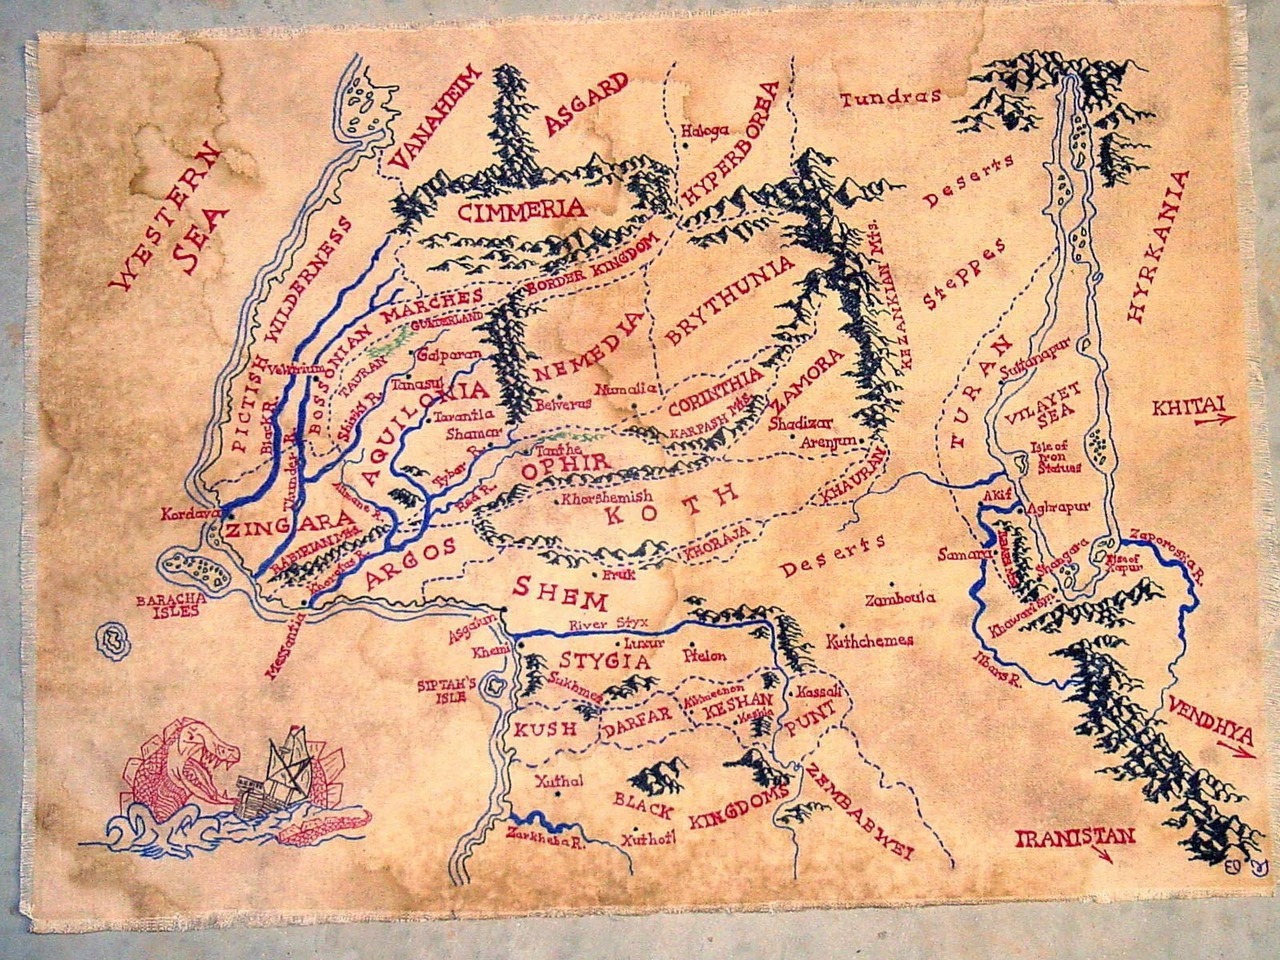 WESTERN SEA
VANAHEIM
ASGARD
HYPERBOREA
Haloga
Tundras
Deserts
Steppes
HYRKANIA
CIMMERIA
PICTISH WILDERNESS
BOSSONIAN MARCHES
BORDER KINGDOM
GUNDERLAND
TAURAN
Galparan
Tanasul
Velitrium
Black R.
Thunder R.
Shirki R.
AQUILONIA
Tarantia
Shamar
Tybor R.
Red R.
Alimane R.
NEMEDIA
Belverus
Numalia
BRYTHUNIA
CORINTHIA
KARPASH Mts.
ZAMORA
Shadizar
Arenjun
KEZANKIAN Mts.
TURAN
Sultanapur
VILAYET SEA
KHITAI
Isle of Iron Statues
Akif
Aghrapur
Tanthe
OPHIR
Khorshemish
KOTH
KHAURAN
KHORAJA
Kordava
ZINGARA
RABIRIAN Mts.
Khorotas R.
ARGOS
Messantia
BARACHA ISLES
SHEM
Eruk
Asgalun
Deserts
Samara
Shangara
Khawarizm
Zaporoska R.
Ilbars R.
Zamboula
Kuthchemes
River Styx
Khemi
Luxur
STYGIA
Pteion
Sukhmet
SIPTAH'S ISLE
KUSH
DARFAR
KESHAN
Keshia
Kassali
PUNT
VENDHYA
Xuthal
BLACK KINGDOMS
ZEMBABWEI
Zarkheba R.
Xuthotl
IRANISTAN